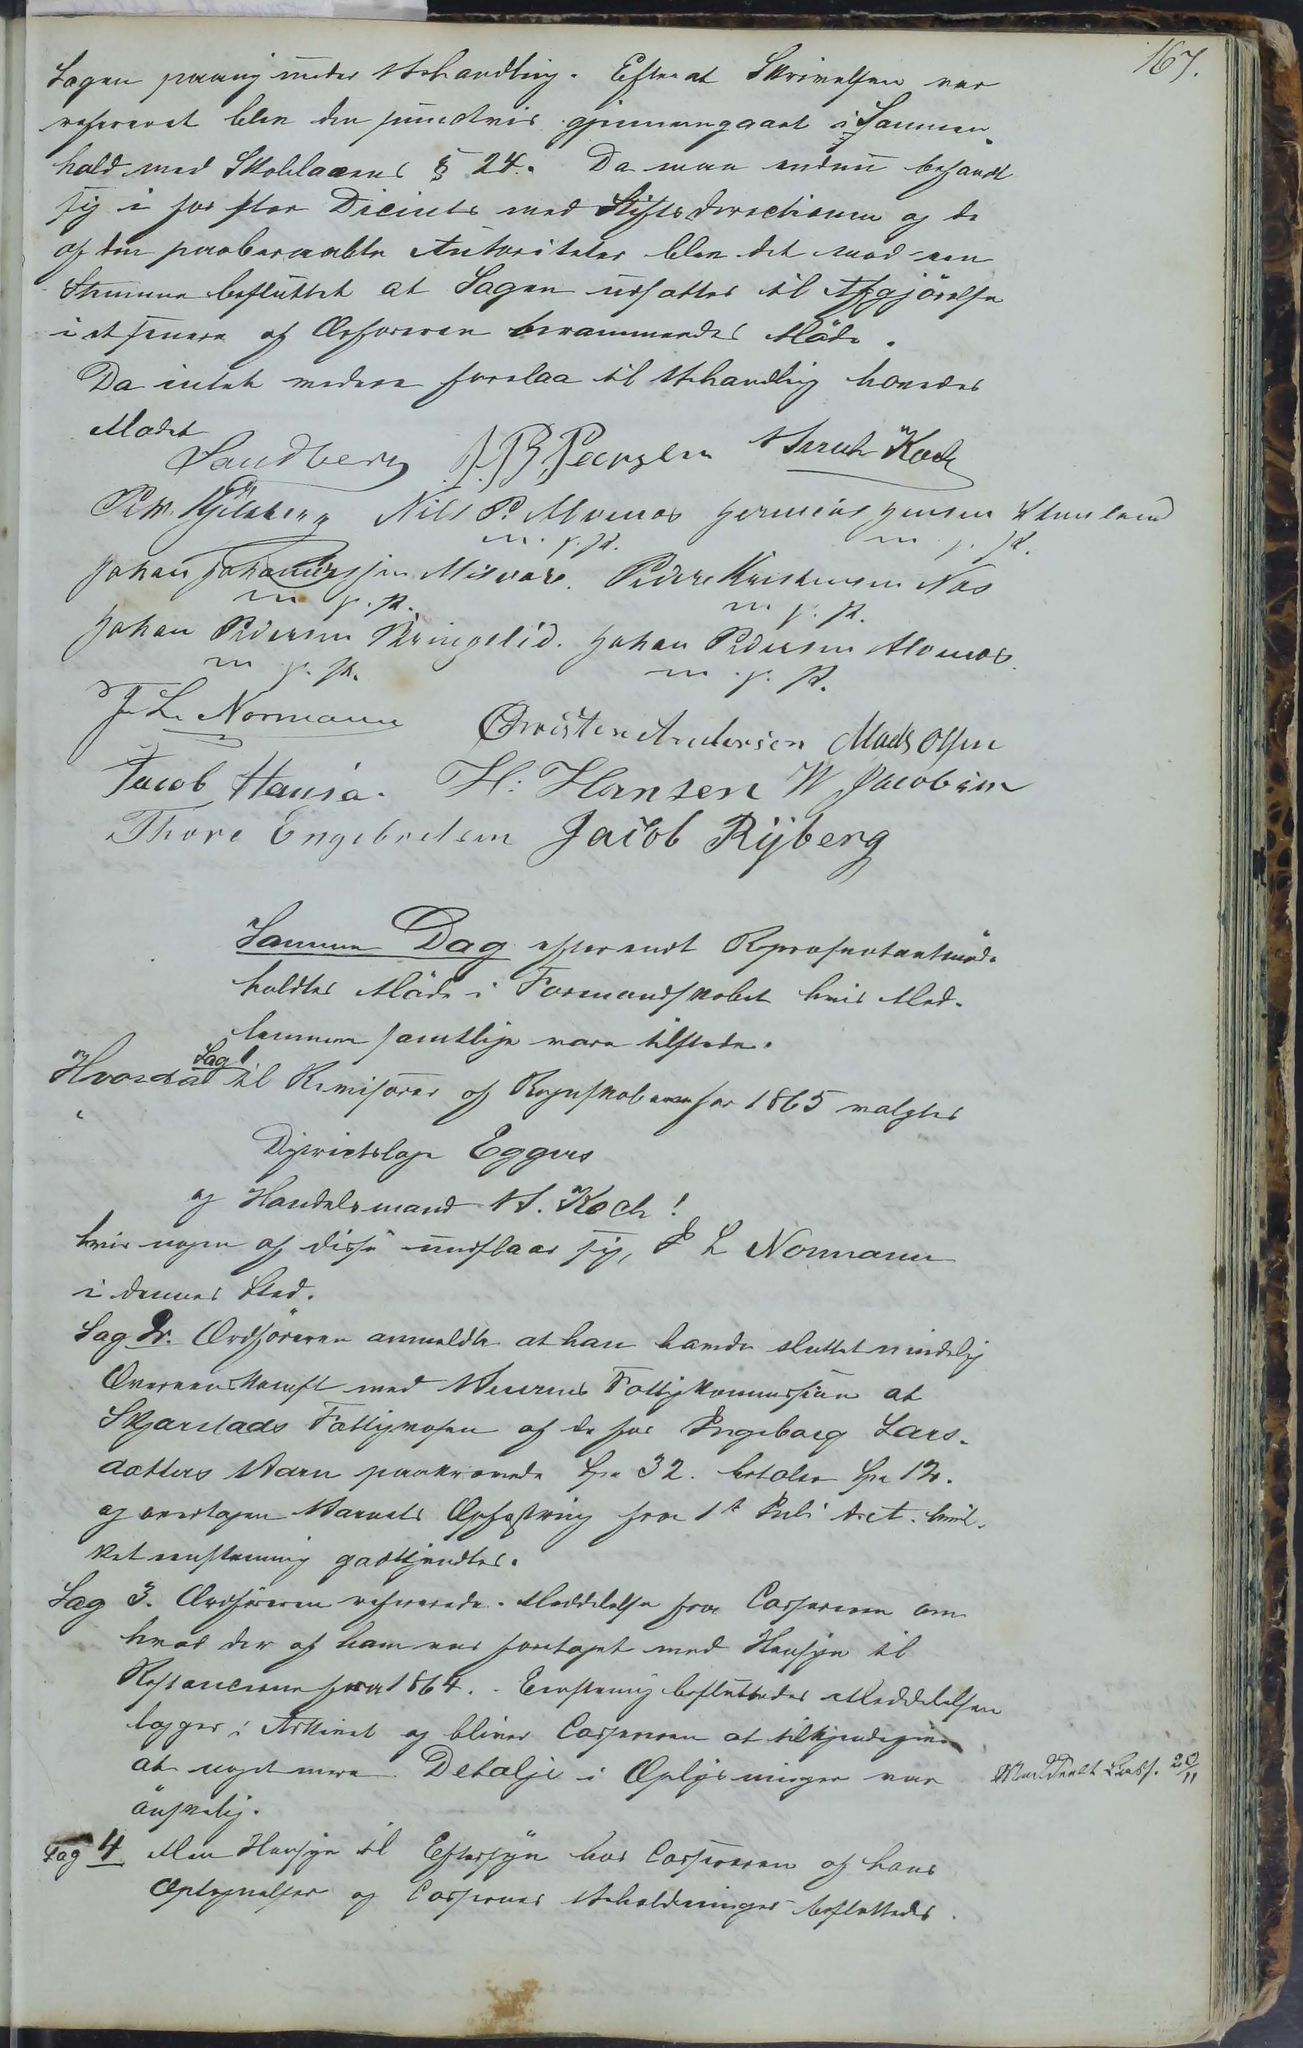 167.
Sagen paany under Behandling. Efter at Skrivelsen var
refereret blev den punctvis gjennemgaaet i Sammen-
hold med Skolelovens § 24. Da man endnu befandt
sig i for stor Dicints med Stiftsdirectionen og de
af den paaberaabte Autoriteter blev det mod een
Stemme besluttet at Sagen udsattes til Afgjörelse
i et senere af Ordföreren berammendes Möde.
Da intet videre forelaa til Behandling hævedes
Mödet
Sandberg J. B. Pedersen Bernh Koch
P. W. Kjelsberg Nils P. Moenes Jermias Jensen
m. p. p. m. p. p.
Johan Johannessen Misvær. Peder Kristensen Næs
m. p. p. m. p. p.
Johan Pedersen Kringelid. Johan Pedersen Moenes
m. p. p. m. p. p.
J. L. Normann Christen Andersen Mads Olsen
Jacob Hansen. H. Hansen W Jacobsen
Thore Engebretsen Jacob Ryberg
Samme Dag efter endt Repræsentantmöde
holdtes Möde i Formandskabet hvis Med-
lemmer samtlige vare tilstede.
Sag 1
Hvorda til Revisorer af Regnskaberne for 1865 valgtes
Districtslæge Eggers
og Handelsmand B. Koch!
hvis nogen af disse undslaar sig, J L Normann
i dennes Sted.
Sag 2. Ordföreren anmeldte at han havde sluttet mindelig
Overeenskomst med Beierns Fattigkommission at
Skjerstads Fattigvæsen af de for Ingeborg Lars-
datters Barn paakrævede Sp 32. betaler Sp 12.
og overtagen Barnets Opfostring fra 1st Juli d. A. hvil-
ket eenstemmig godkjendtes.
Sag 3. Ordföreren refererede Meddelelse fra Cassereren om
hvad der af ham var foretaget med Hensyn til
Restancerne fra 1864. Eenstemmig besluttedes Meddelelsen
lagges i Arkivet og bliver Cassereren at tilkjendegive
at noget mere Detalje i Oplysninger var
önskelig.
Meddeelt Cass. 20/11
Sag 4 Med Hensyn til Eftersyn hos Cassereren af hans
Optegnelser og Cassernes Beholdninger besluttedes